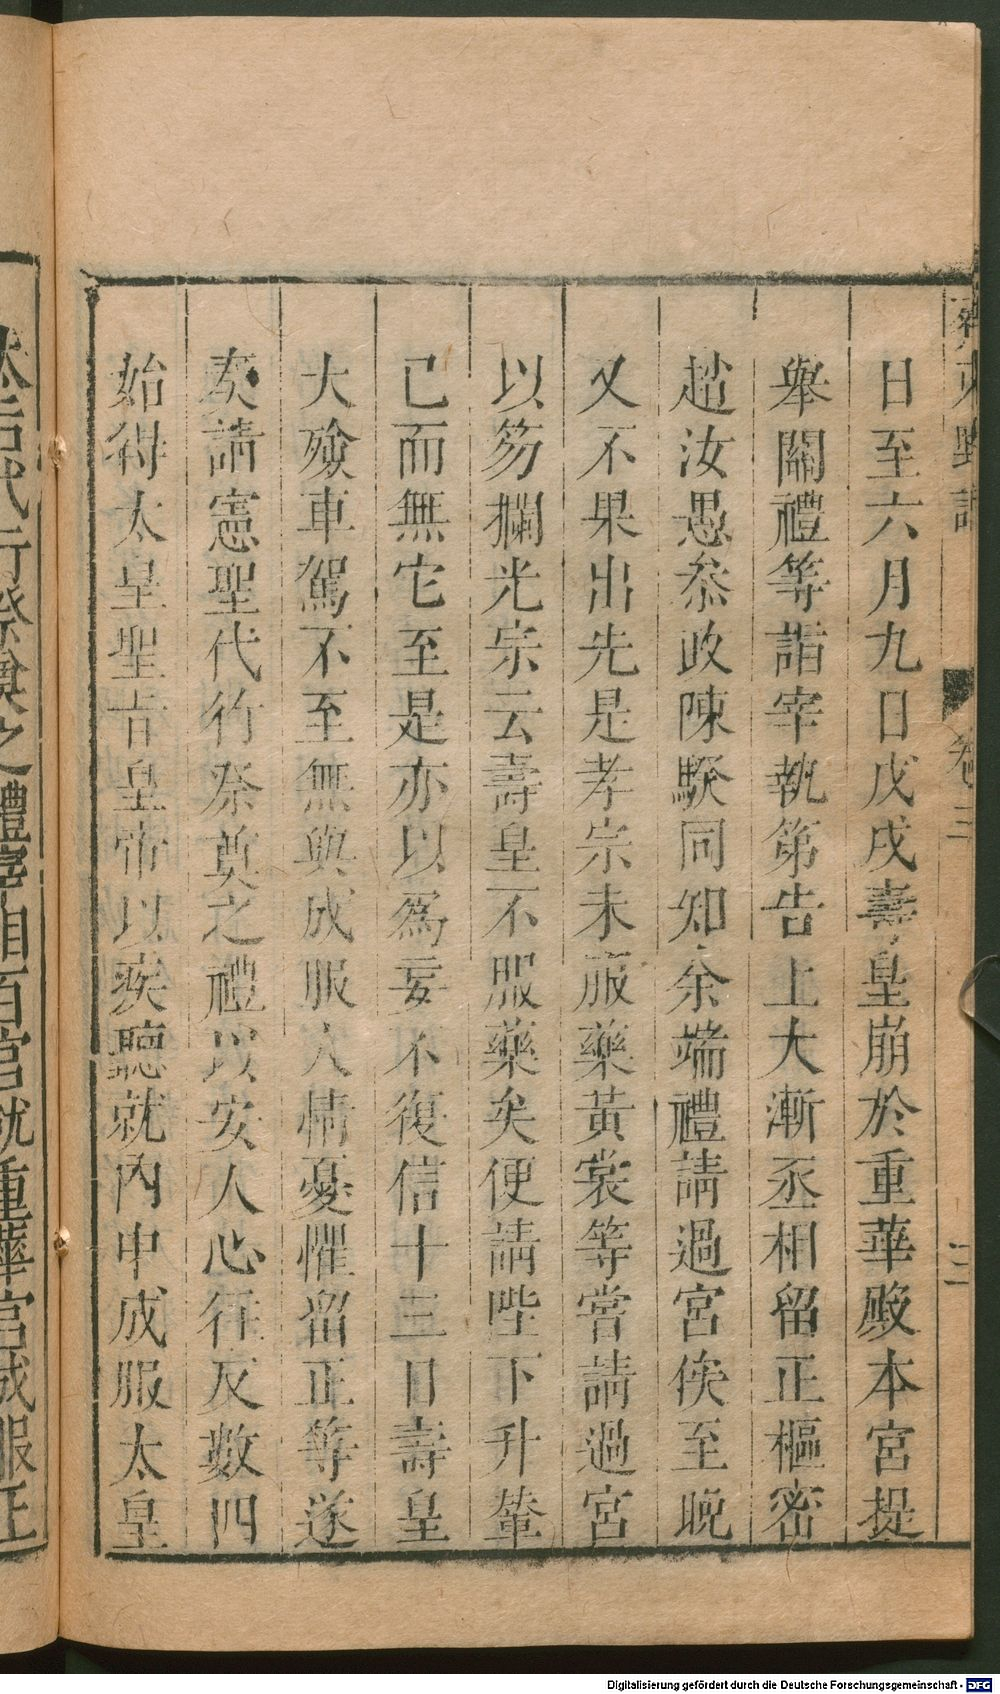 齊東野語
卷三
三
日至六月九日戊戌壽皇崩於重華殿本宮提
舉關禮等詣宰執第告上大漸丞相留正樞密
趙汝愚叅政陳騤同知余端禮請過宮俟至晚
又不果出先是孝宗未服藥黃裳等嘗請過宮
以笏攔光宗云壽皇不服藥矣便請陛下升輦
已而無它至是亦以爲妄不復信十三日壽皇
大殮車駕不至無與成服人情憂懼留正等遂
奏請憲聖代行祭奠之禮以安人心徃反數四
始得太皇聖旨皇帝以疾聽就內中成服太皇
太后代行祭奠之禮宰相百官就重華宮成服正
Digitalisierung gefördert durch die Deutsche Forschungsgemeinschaft - DFG